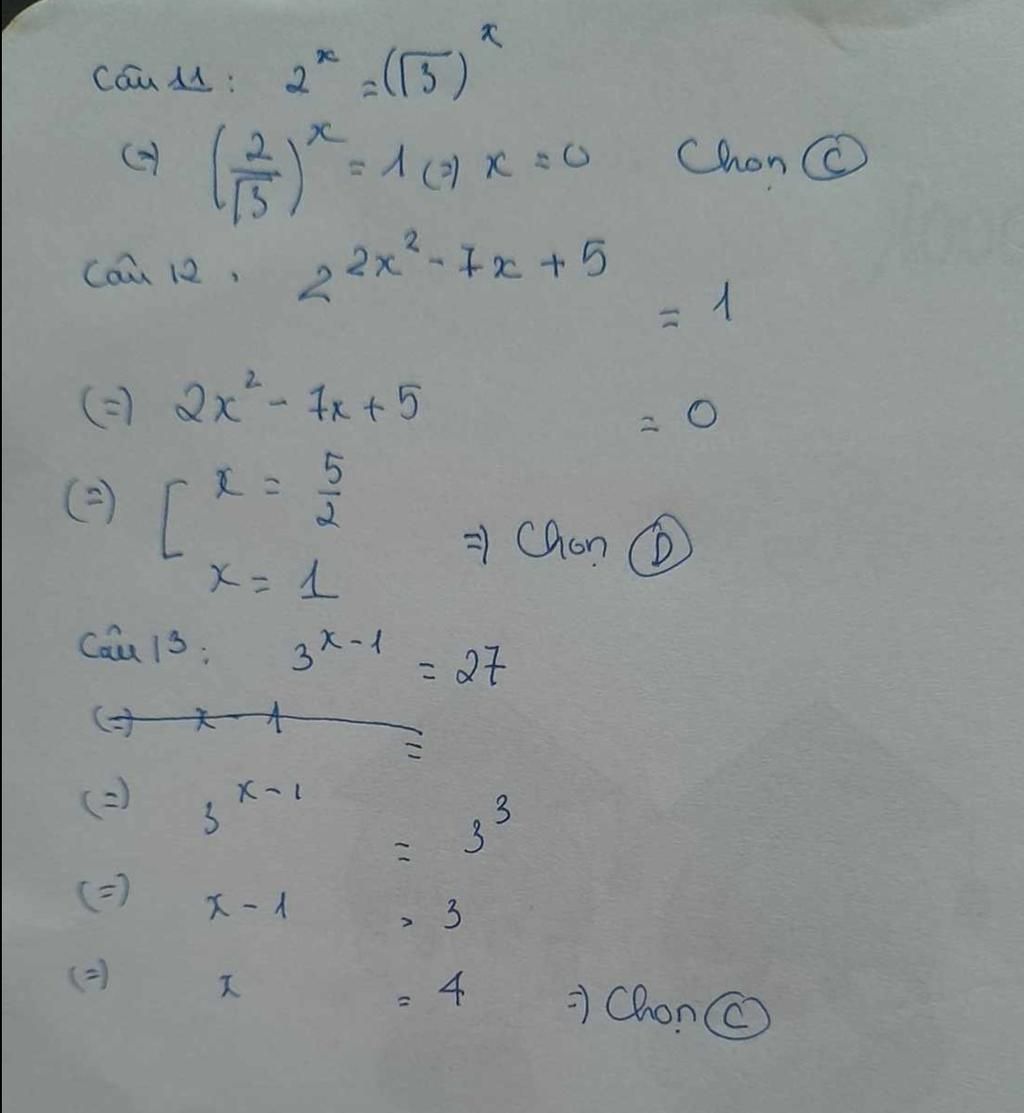 Câu 11 : 2^x = (√3)^x
(=) (2/√3)^x = 1 (=) x = 0 Chọn C
Câu 12 . 2^(2x² - 7x + 5) = 1
(=) 2x² - 7x + 5 = 0
(=) [ x = 5/2
x = 1 =) Chọn D
Câu 13 : 3^(x-1) = 27
(=) x - 1 =
(=) 3^(x-1) = 3^3
(=) x - 1 = 3
(=) x = 4 =) Chọn C